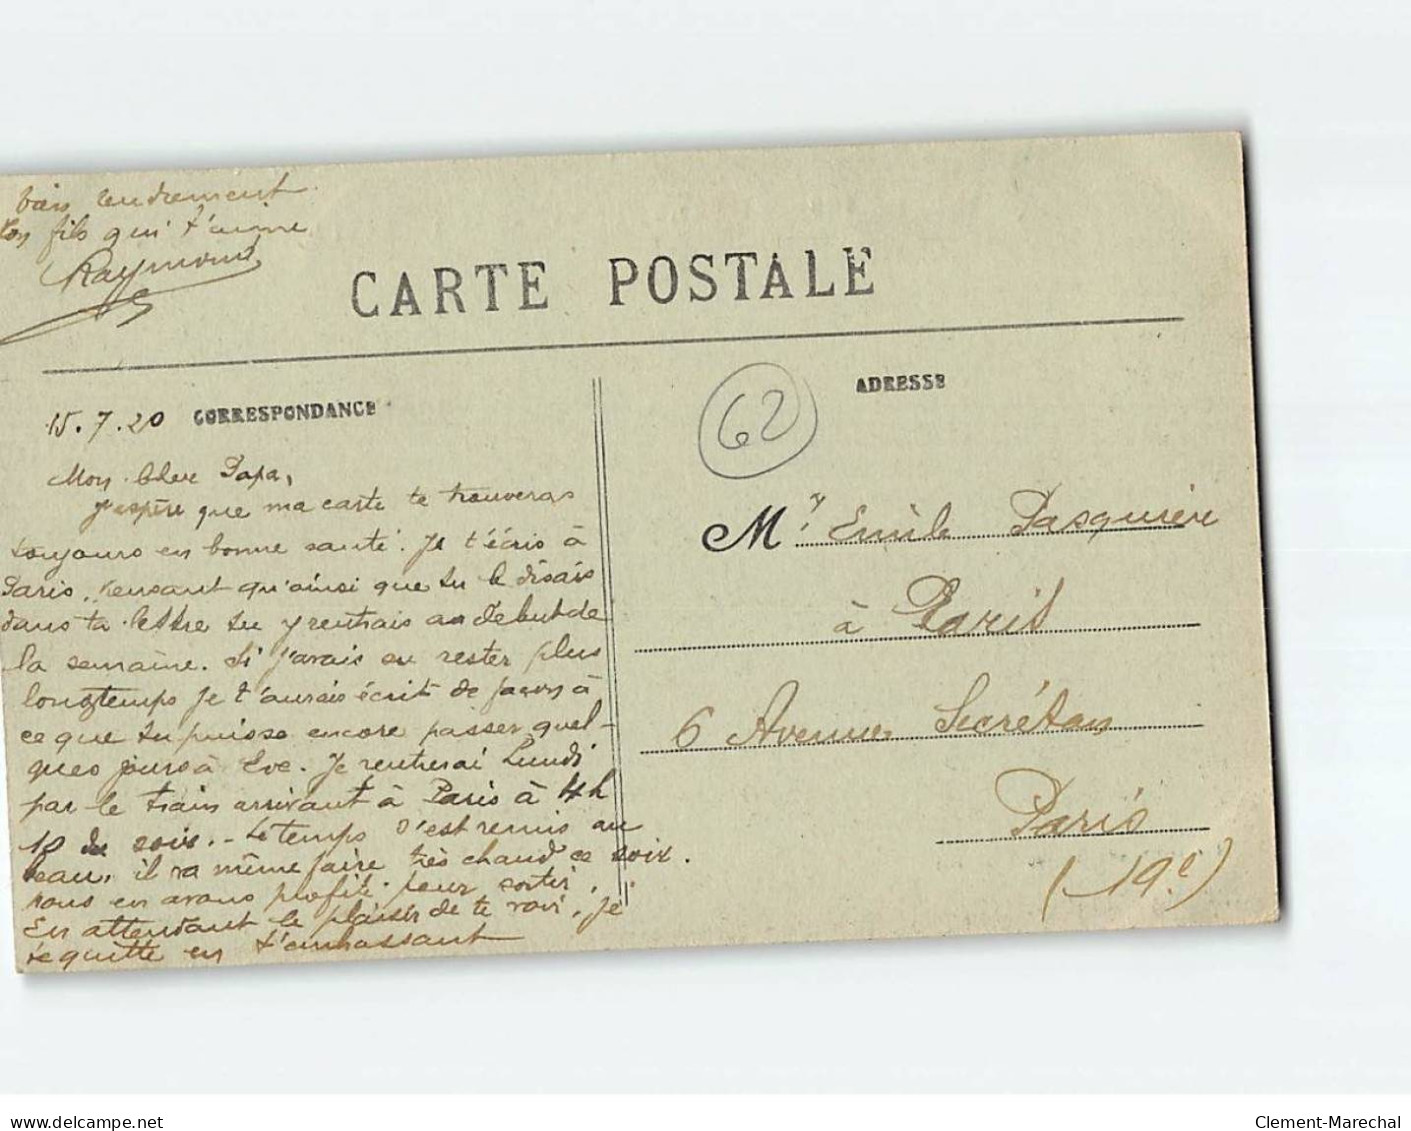 bien tendrement
ton fils qui t'aime
Raymond
CARTE POSTALE
15.7.20 CORRESPONDANCE
Mon Cher Papa,
J'espère que ma carte te trouveras
toujours en bonne santé. Je t'écris à
Paris, pensant qu'ainsi que tu le disais
dans ta lettre tu y rentrais au début de
la semaine. Si j'avais su rester plus
longtemps je t'aurais écrit de façon à
ce que tu puisse encore passer quel-
ques jours à Eve. Je rentrerai Lundi
par le train arrivant à Paris à 4h
10 du soir. - Le temps s'est remis au
beau, il va même faire très chaud ce soir.
nous en avons profité pour sortir.
En attendant le plaisir de te voir, je
te quitte en t'embrassant
62
ADRESSE
Mr Emile Pasquière
à Paris
6 Avenue Secrétan
Paris
(19e)
delcampe.net
Clement-Marechal